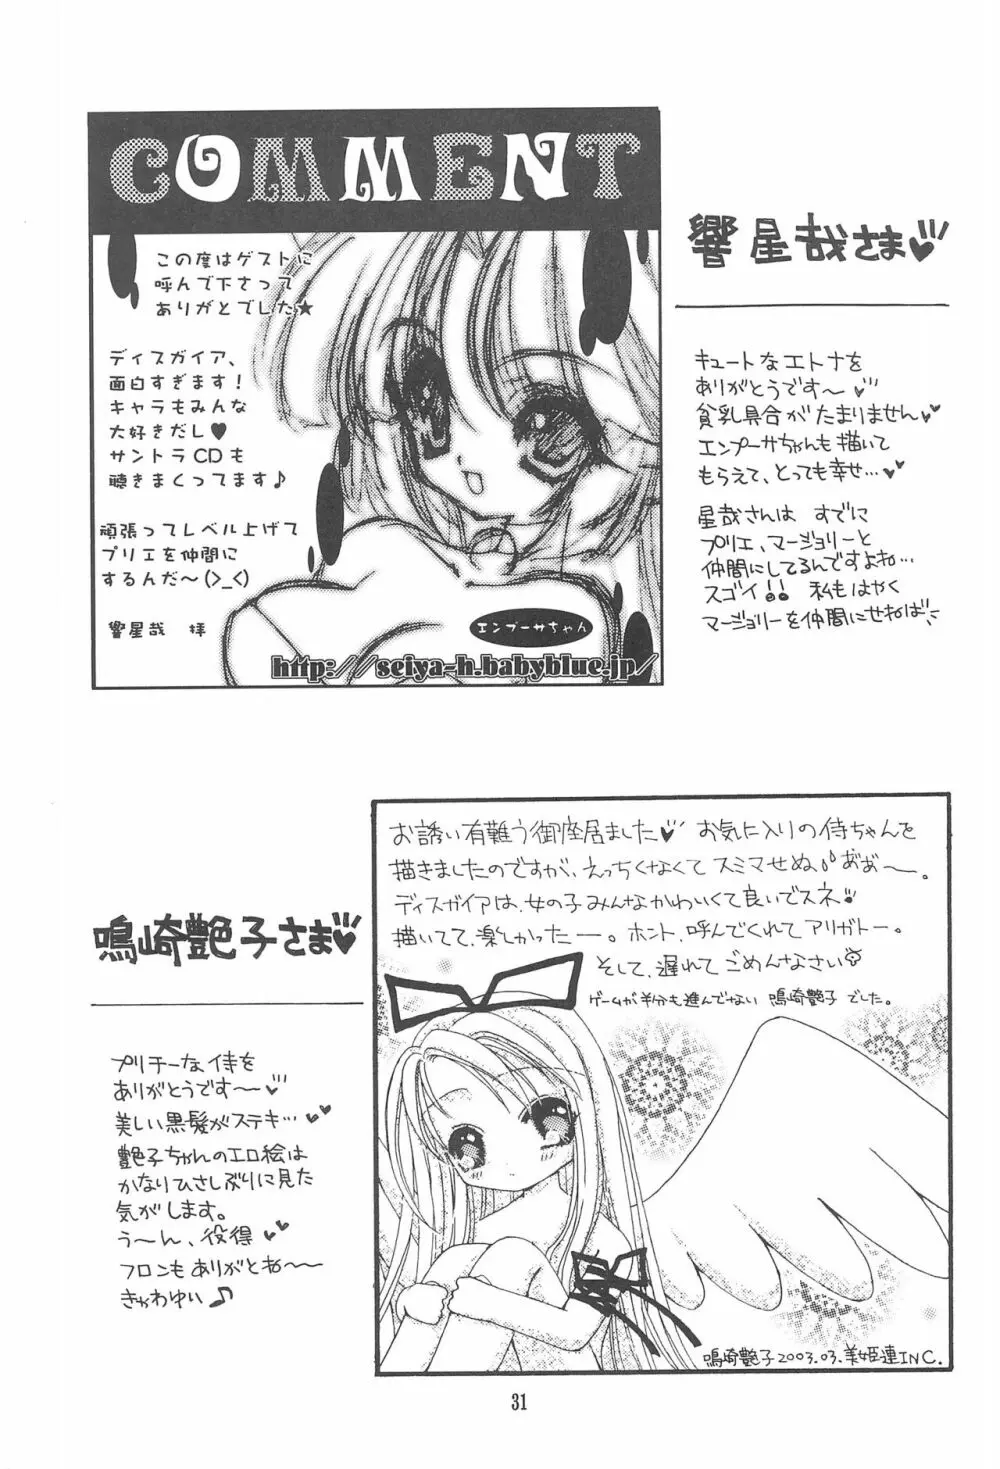 COMMENT
この度はゲストに
呼んで下さって
ありがとでした★
ディスガイア、
面白すぎます！
キャラもみんな
大好きだし♥
サントラCDも
聴きまくってます♪
頑張ってレベル上げて
プリエを仲間に
するんだ〜(>_<)
響星哉　拝
エンプーサちゃん
http://seiya-h.babyblue.jp/
響星哉さま♥
キュートなエトナを
ありがとうです〜♥
貧乳具合がたまりません♥
エンプーサちゃんも描いて
もらえて、とっても幸せ…♥
星哉さんは すでに
プリエ、マージョリーと
仲間にしてるんですよね…
スゴイ!! 私もはやく
マージョリーを仲間にせねば
お誘い有難う御座居ました♥ お気に入りの侍ちゃんを
描きましたのですが、えっちくなくてスミマせぬ♪ああ〜。
ディスガイアは、女の子みんなかわいくて良いでスネ
描いてて、楽しかったー。ホント、呼んでくれてアリガトー。
そして、遅れてごめんなさい
ゲームが半分も進んでない 鳴崎艶子 でした。
鳴崎艶子さま♥
プリチーな侍を
ありがとうです〜♥
美しい黒髪がステキ…♥
艶子ちゃんのエロ絵は
かなりひさしぶりに見た
気がします。
う〜ん、役得♥
フロンもありがとね〜
きゃわゆい♪
鳴崎艶子2003.03.美姫連INC.
31